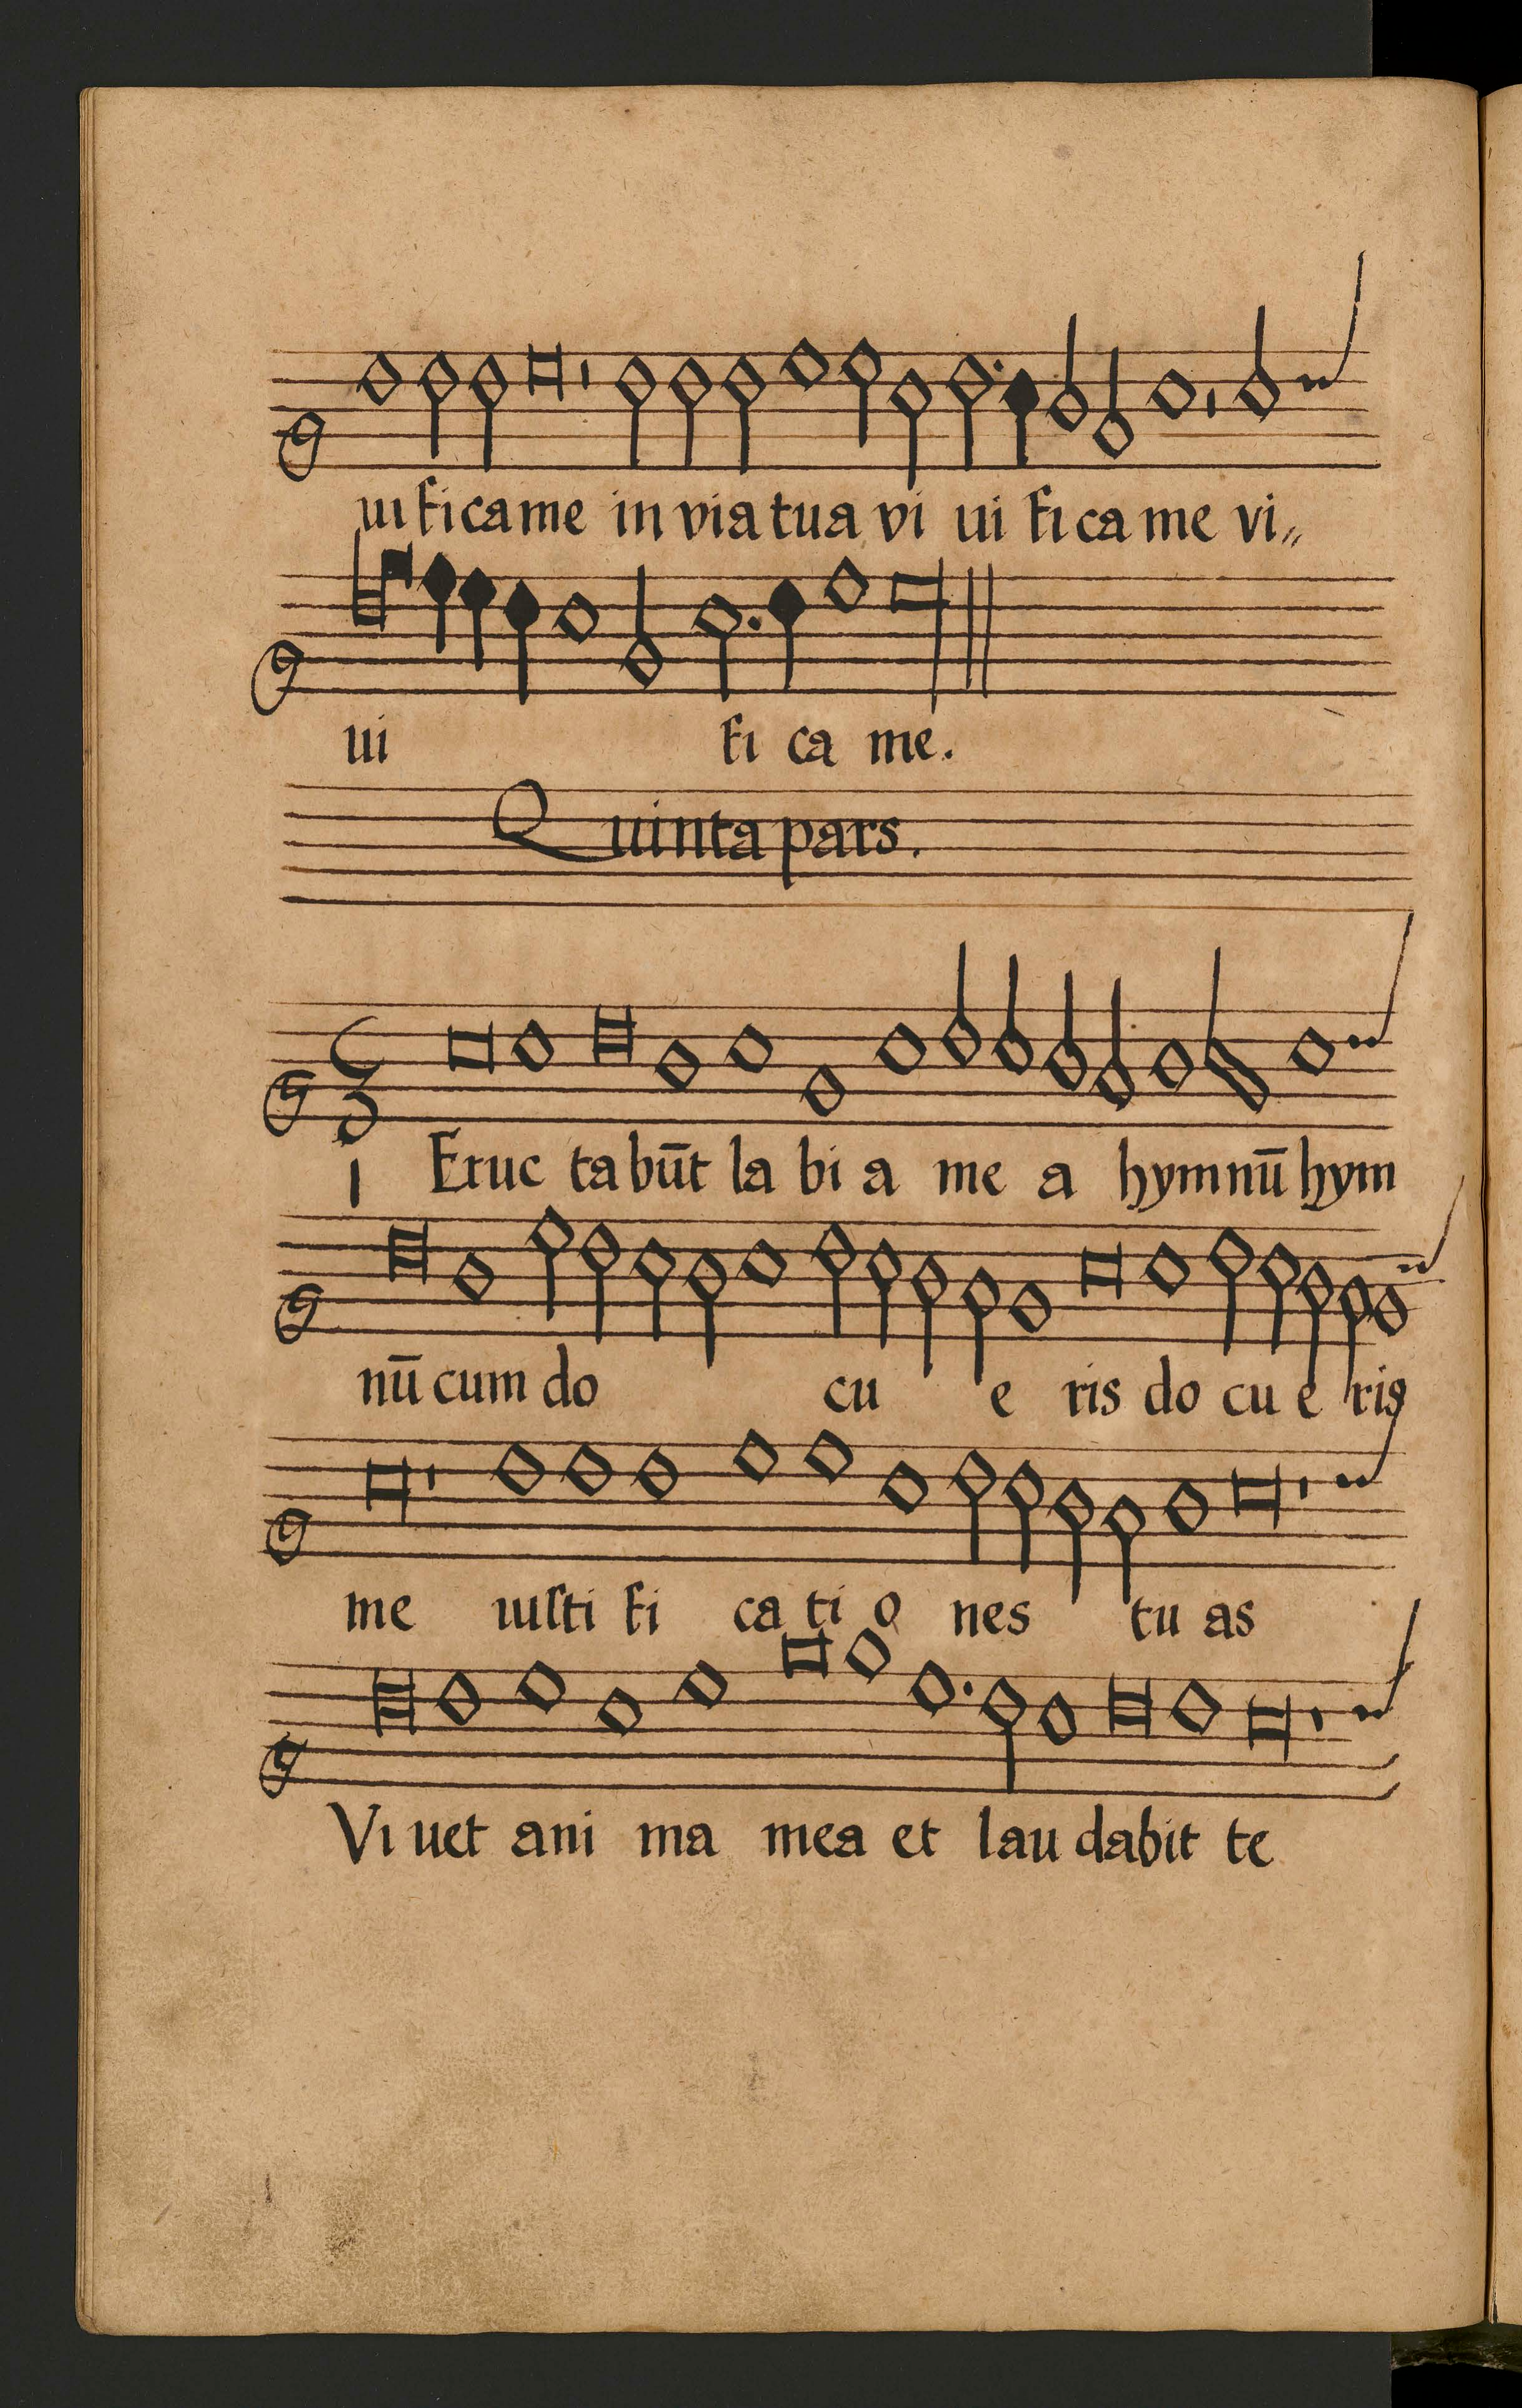 uificame in via tua vi ui fi ca me vi〃
ui fi ca me.
Quinta pars.
3
1 Eruc ta būt la bi a me a hymnū hym
nū cum do cu e ris do cu e ris
me iuſti fi ca ti o nes tu as
Vi uet ani ma mea et lau dabit te